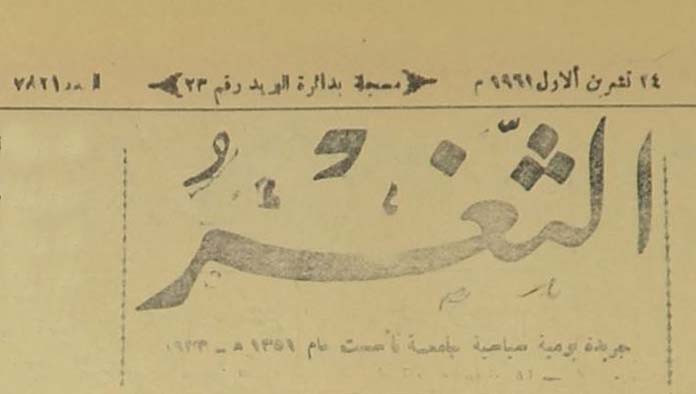 ٢٤ تشرين الاول ١٩٦١ م مسجلة بدائرة البريد رقم ٢٣ العدد ٧٨٢١
الثَّغْرُ
جريدة يومية صباحية جامعة تأسست عام ١٣٥١ هـ ــ ١٩٣٣